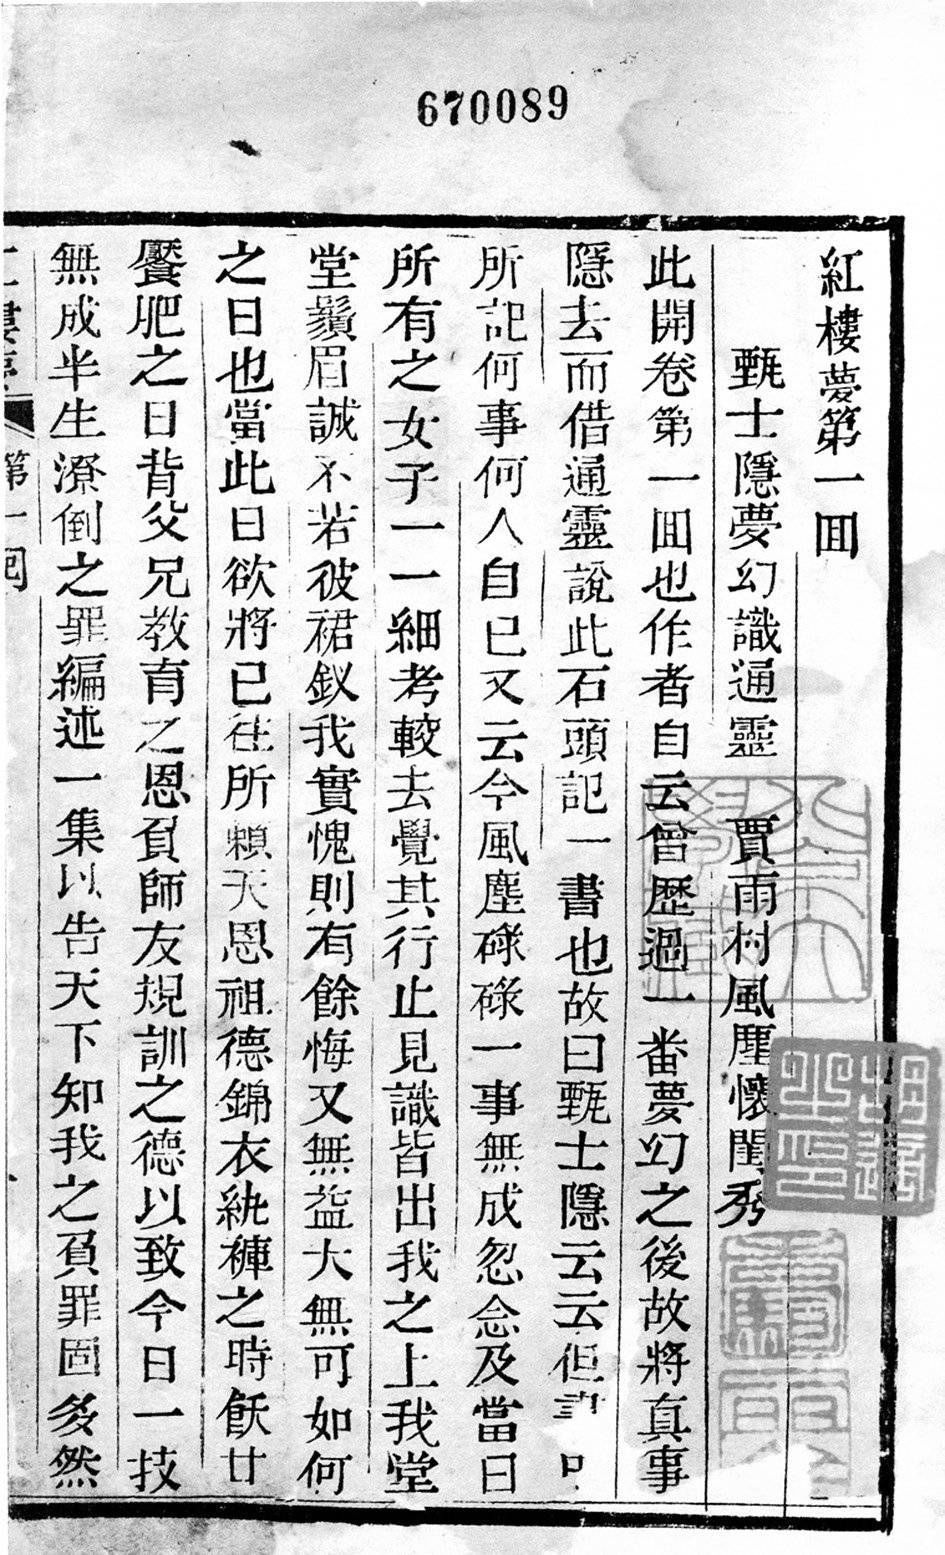 670089
紅樓夢第一囬
甄士隱夢幻識通靈　賈雨村風塵懷閨秀
此開卷第一囬也作者自云曾歷過一番夢幻之後故將真事
隱去而借通靈說此石頭記一書也故曰甄士隱云云但書中
所記何事何人自已又云今風塵碌碌一事無成忽念及當日
所有之女子一一細考較去覺其行止見識皆出我之上我堂
堂鬚眉誠不若彼裙釵我實愧則有餘悔又無益大無可如何
之日也當此日欲將已往所賴天恩祖德錦衣紈褲之時飫甘
饜肥之日背父兄教育之恩負師友規訓之德以致今日一技
無成半生潦倒之罪編述一集以告天下知我之負罪固多然
紅樓夢
第一回